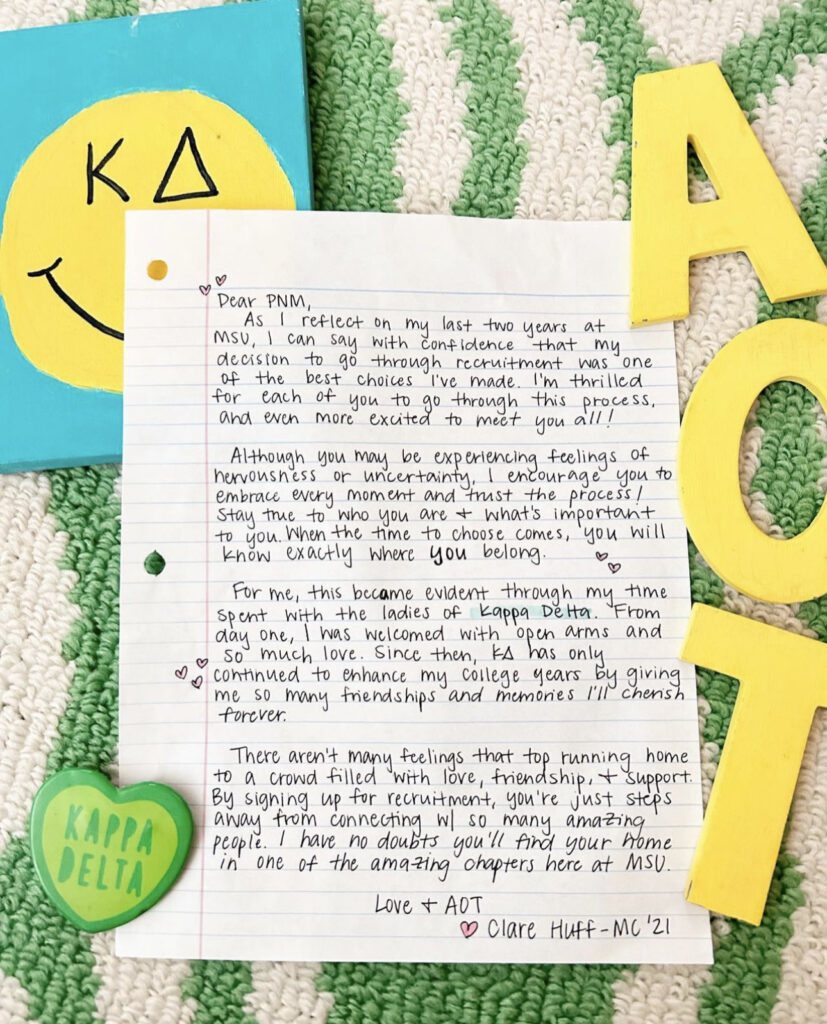 KΔ
A
O
T
Dear PNM,
As I reflect on my last two years at
MSU, I can say with confidence that my
decision to go through recruitment was one
of the best choices I've made. I'm thrilled
for each of you to go through this process,
and even more excited to meet you all!
Although you may be experiencing feelings of
nervousness or uncertainty, I encourage you to
embrace every moment and trust the process!
Stay true to who you are + what's important
to you. When the time to choose comes, you will
know exactly where you belong.
For me, this became evident through my time
spent with the ladies of Kappa Delta. From
day one, I was welcomed with open arms and
so much love. Since then, KΔ has only
continued to enhance my college years by giving
me so many friendships and memories I'll cherish
forever.
There aren't many feelings that top running home
to a crowd filled with love, friendship, + support.
By signing up for recruitment, you're just steps
away from connecting w/ so many amazing
people. I have no doubts you'll find your home
in one of the amazing chapters here at MSU.
Love + AOT
Clare Huff - MC '21
KAPPA
DELTA